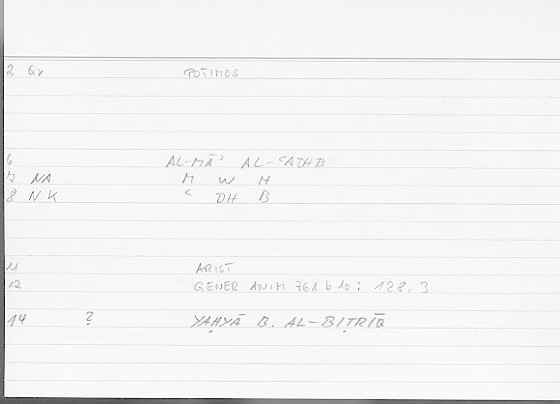 2 Gr POTIMOS
6 AL-MĀʾ AL-ʿADHB
7 NA M W H
8 NK ʿ DH B
11 ARIST
12 GENER ANIM 761 b 10: 128, 3
14 ? YAḤYĀ B. AL-BIṬRĪQ